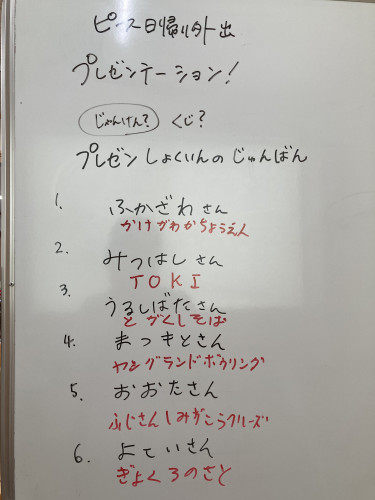 ピース日帰り外出
プレゼンテーション!
じゃんけん? くじ?
プレゼンしょくいんのじゅんばん
1. ふかざわさん
かけがわかちょうえん
2. みつはしさん
TOKI
3. うるしばたさん
とづくしそば
4. まつもとさん
ヤングランドボウリング
5. おおたさん
ふじさんしみずこうクルーズ
6. よていさん
ぎょくろのさと